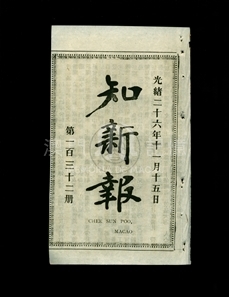 光緒二十六年十一月十五日
知新報
第一百三十二册
"CHEE SUN POO,"
MACAO